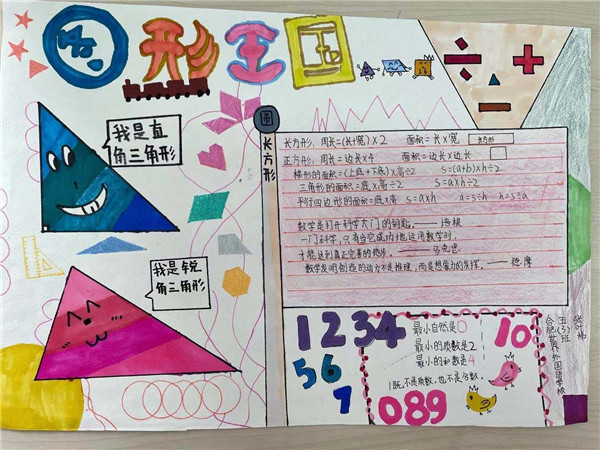 图形王国
我是直
角三角形
我是锐
角三角形
÷ × + −
圆
长方形
长方形：周长=(长+宽)×2 面积=长×宽 长方形
正方形：周长=边长×4 面积=边长×边长
梯形的面积=(上底+下底)×高÷2 s=(a+b)×h÷2
三角形的面积=底×高÷2 S=a×h÷2
平行四边形的面积=底×高 s=a×h a=s÷h h=s÷a
数学是打开科学大门的钥匙。——培根
一门科学，只有当它成功地运用数学时，
才能达到真正完善的地步。——马克思
数学发明创造的动力不是推理，而是想象力的发挥。——德·摩
1234
567
最小自然是0
最小的质数是2
最小的和数是4
1既不是质数，也不是合数。
10
089
五(3)班
合肥世界外国语学校